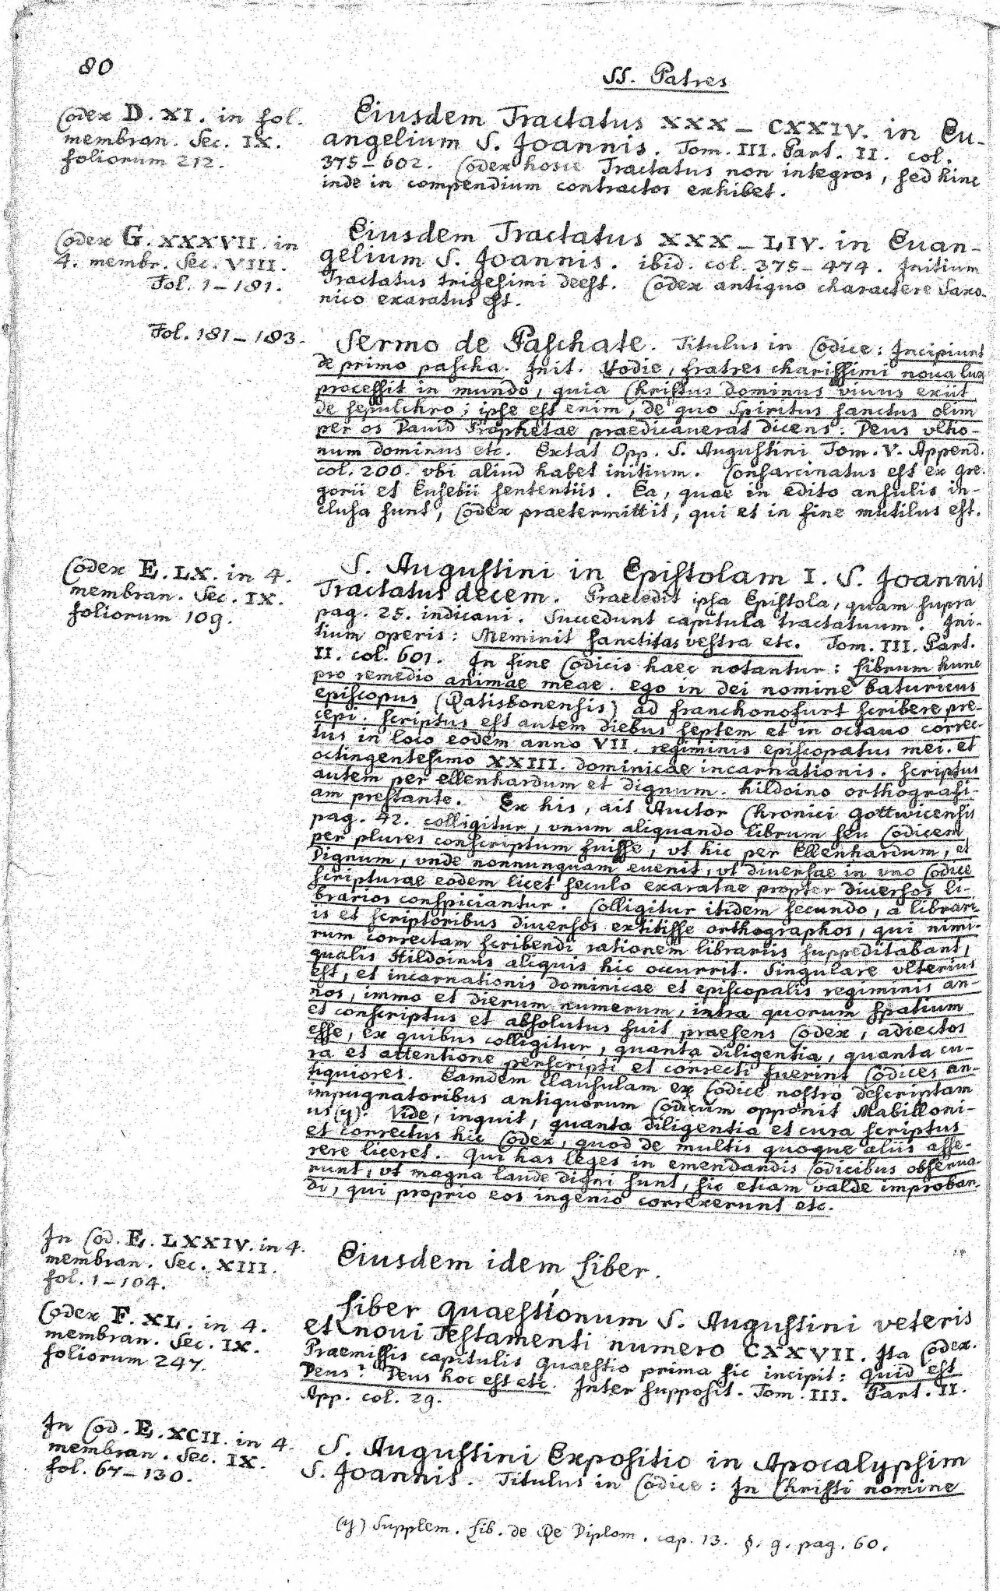 80
SS. Patres
Codex D. XI. in fol.
membran. Sec. IX.
foliorum 212.
Eiusdem Tractatus XXX – CXXIV. in Eu-
angelium S. Joannis. Tom. III. Part. II. col.
375–602. Codex hosce Tractatus non integros, sed hinc
inde in compendium contractos exhibet.
Codex G. XXXVII. in
4. membr. Sec. VIII.
Fol. 1–181.
Eiusdem Tractatus XXX – LIV. in Euan-
gelium S. Joannis. ibid. col. 375–474. Initium
Tractatus trigesimi deest. Codex antiquo charactere Saxo-
nico exaratus est.
Fol. 181–183.
Sermo de Paschate. Titulus in Codice: Incipiunt
de primo pascha. Init. Hodie, fratres charissimi noua lux
processit in mundo, quia Christus dominus viuus exiit
de sepulchro; ipse est enim, de quo Spiritus sanctus olim
per os Dauid Prophetae praedicauerat dicens: Deus vltio-
num dominus etc. Extat Opp. S. Augustini Tom. V. Append.
col. 200. vbi aliud habet initium. Consarcinatus est ex Gre-
gorii et Eusebii sententiis. Ea, quae in edito ansulis in-
clusa sunt, Codex praetermittit, qui et in fine mutilus est.
Codex E. LX. in 4.
membran. Sec. IX.
foliorum 109.
S. Augustini in Epistolam I. S. Joannis
Tractatus decem. Praecedit ipsa Epistola, quam supra
pag. 25. indicaui. Succedunt capitula tractatuum. Ini-
tium operis: Meminit sanctitas vestra etc. Tom. III. Part.
II. col. 601. In fine Codicis haec notantur: Librum hunc
pro remedio animae meae. ego in dei nomine baturicus
episcopus (Ratisbonensis) ad franchonofurt scribere pre-
cepi. scriptus est autem diebus septem et in octauo correc-
tus in loco eodem anno VII. regiminis episcopatus mei. et
octingentesimo XXIII. dominicae incarnationis. scriptus
autem per ellenhardum et dignum. hildoino orthografi-
am prestante. Ex his, ait Auctor Chronici Gottwicensis
pag. 42. colligitur, vnum aliquando librum seu Codicem
per plures conscriptum fuisse, vt hic per Ellenhardum, et
Dignum, vnde nonnunquam euenit, vt diuersae in vno Codice
scripturae eodem licet seculo exaratae propter diuersos li-
brarios conspiciantur. Colligitur itidem secundo, a librari-
is et scriptoribus diuersos extitisse orthographos, qui nimi-
rum correctam scribendi rationem librariis suppeditabant,
qualis Hildoinus aliquis hic occurrit. Singulare vlterius
est, et incarnationis dominicae et episcopalis regiminis an-
nos, immo et dierum numerum, intra quorum spatium
et conscriptus et absolutus fuit praesens Codex, adiectos
esse, ex quibus colligitur, quanta diligentia, quanta cu-
ra et attentione perscripti et correcti fuerint Codices an-
tiquiores. Eamdem clausulam ex Codice nostro descriptam
impugnatoribus antiquorum Codicum opponit Mabilloni-
us (y). Vide, inquit, quanta diligentia et cura scriptus
et correctus hic Codex, quod de multis quoque aliis asse-
rere liceret. Qui has leges in emendandis Codicibus obserua-
runt, vt magna laude digni sunt, sic etiam valde improban-
di, qui proprio eos ingenio correxerunt etc.
In Cod. E. LXXIV. in 4.
membran. Sec. XIII.
fol. 1–104.
Eiusdem idem Liber.
Codex F. XL. in 4.
membran. Sec. IX.
foliorum 247.
Liber Quaestionum S. Augustini veteris
et noui Testamenti numero CXXVII. Ita Codex.
Praemissis capitulis Quaestio prima sic incipit: Quid est
Deus? Deus hoc est etc. Inter supposit. Tom. III. Part. II.
App. col. 29.
In Cod. E. XCII. in 4.
membran. Sec. IX.
fol. 67–130.
S. Augustini Expositio in Apocalypsim
S. Joannis. Titulus in Codice: In Christi nomine
(y) Supplem. Lib. de Re Diplom. cap. 13. §. 9. pag. 60.